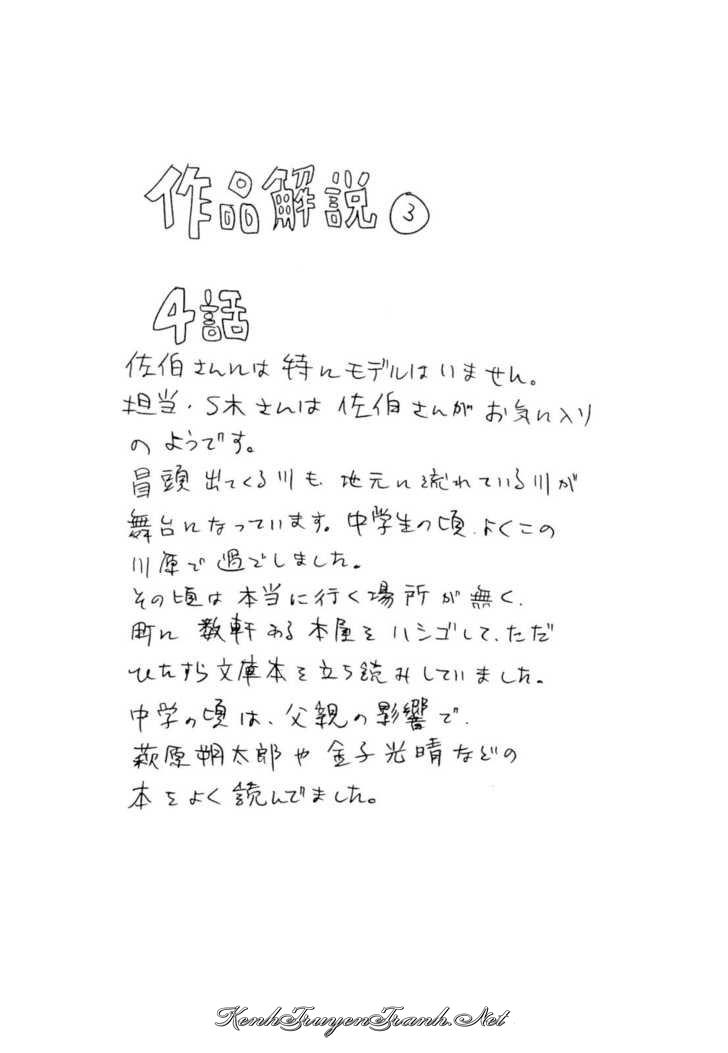 作品解説③
4話
佐伯さんには特にモデルはいません。
担当・S木さんは佐伯さんがお気に入り
のようです。
冒頭出てくる川も、地元に流れている川が
舞台になっています。中学生の頃、よくこの
川原で過ごしました。
その頃は本当に行く場所が無く、
町に数軒ある本屋をハシゴして、ただ
ひたすら文庫本を立ち読みしていました。
中学の頃は、父親の影響で、
萩原朔太郎や金子光晴などの
本をよく読んでました。
KenhTruyenTranh.Net